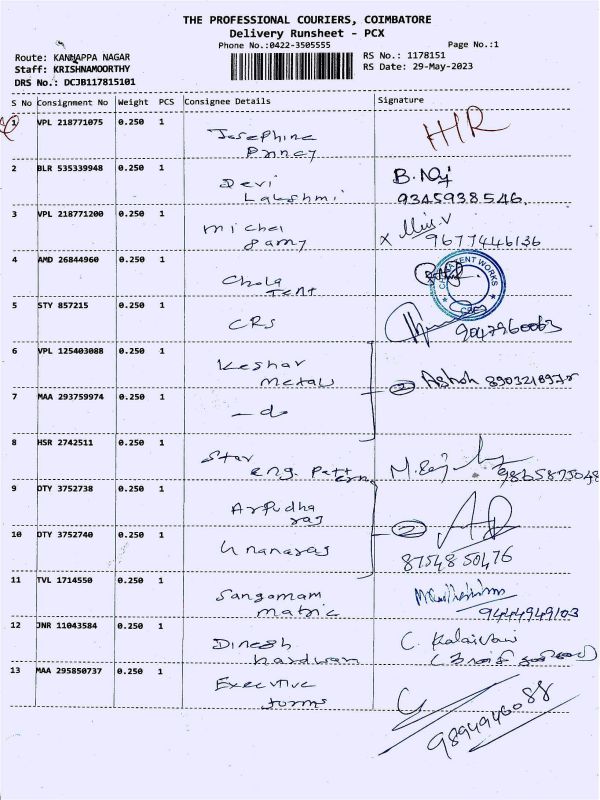 THE PROFESSIONAL COURIERS, COIMBATORE
Delivery Runsheet - PCX
Phone No.:0422-3505555
Page No.:1
Route: KANNAPPA NAGAR
RS No.: 1178151
Staff: KRISHNAMOORTHY
RS Date: 29-May-2023
DRS No.: DCJB117815101
S No Consignment No Weight PCS Consignee Details Signature
1 VPL 218771075 0.250 1 Josephine HIR
Princy
2 BLR 535339948 0.250 1 Devi B.
Lakshmi 9345938546
3 VPL 218771200 0.250 1 Michel
Samy X 9677446136
4 AMD 26844960 0.250 1 Chola TENT WORKS
Tent CBE
5 STY 857215 0.250 1 CRS
9047960063
6 VPL 125403088 0.250 1 Keshav
Metals 2 Ashok
7 MAA 293759974 0.250 1 - do
8 HSR 2742511 0.250 1 Star M.
eng. Pattern 9865875048
9 OTY 3752738 0.250 1 Arpudha
raj 2
10 OTY 3752740 0.250 1 Gnanaraj
87548 50476
11 TVL 1714550 0.250 1 Sangamam
Matric 9444949103
12 JNR 11043584 0.250 1 Dinesh C. Kalaivani
hardware
13 MAA 295850737 0.250 1 Executive
forms
9894946088